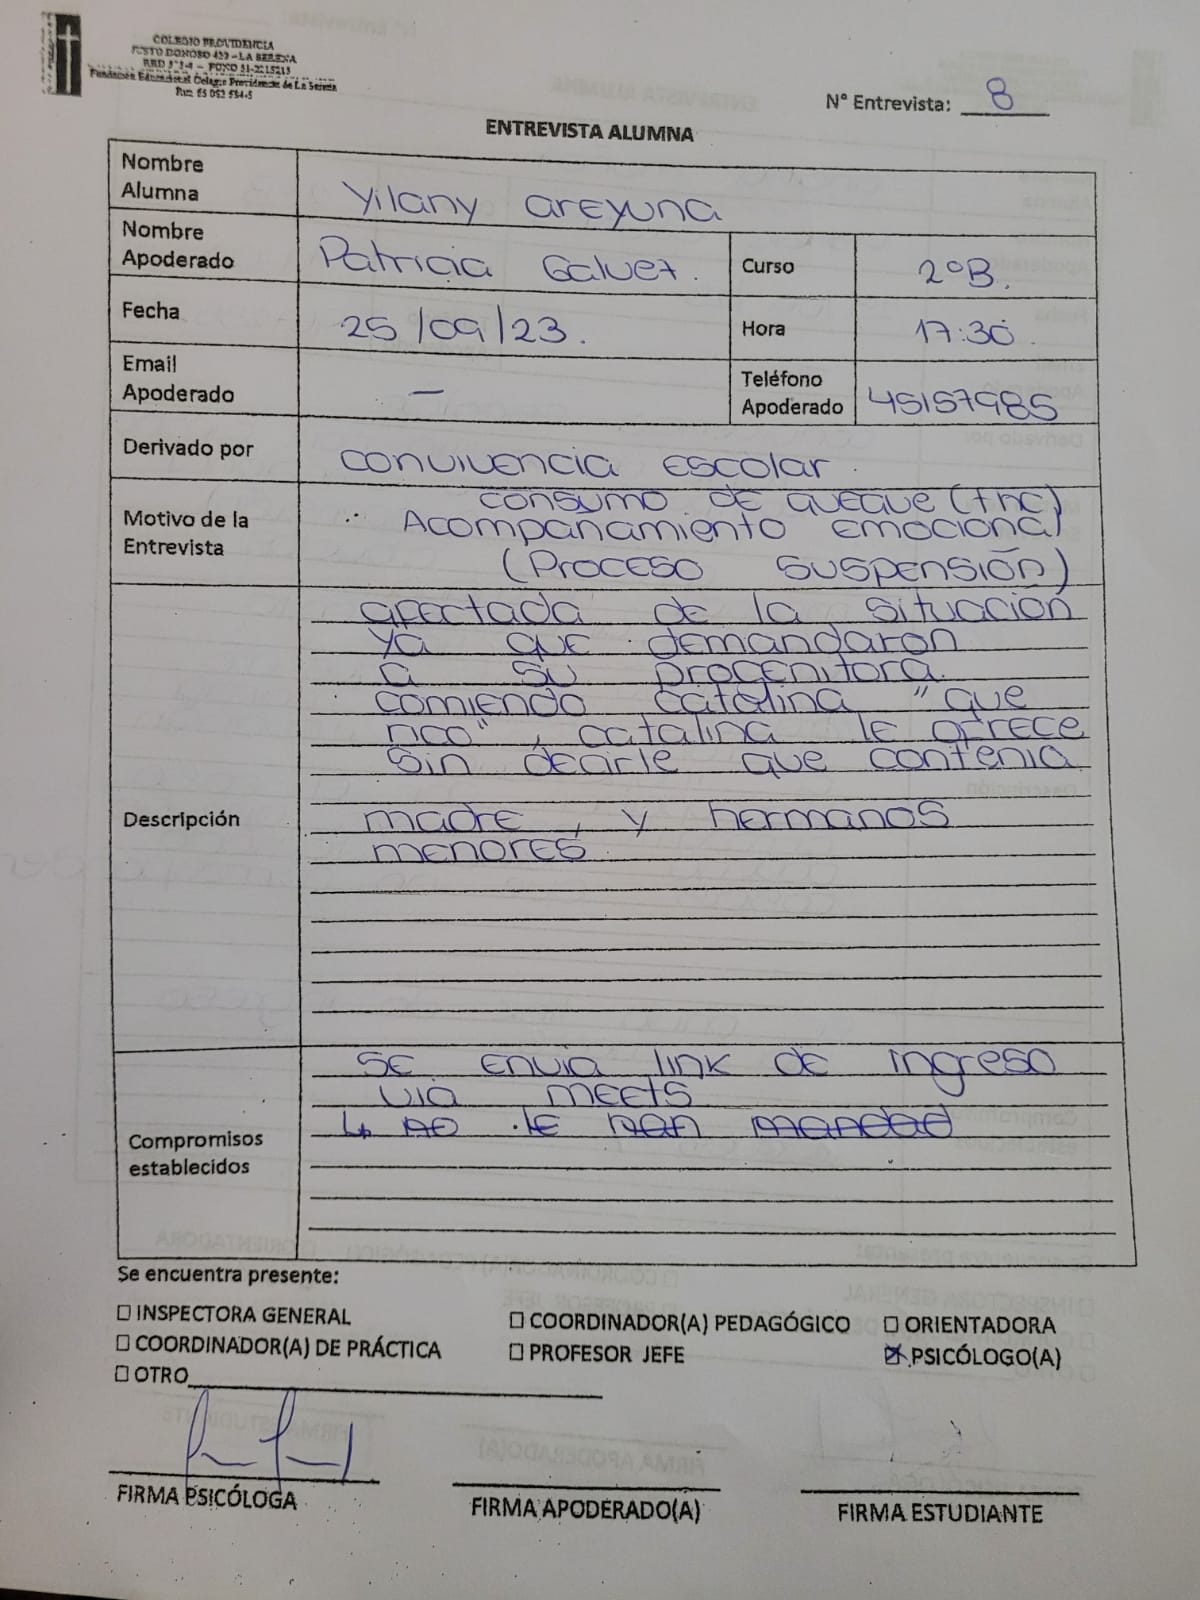 COLEGIO PROVIDENCIA
JUSTO DONOSO 420 – LA SERENA
– FONO 51-2215215
Fundación Educacional Colegio Providencia de La Serena
Rut: 65 052 534-5
N° Entrevista: 8
ENTREVISTA ALUMNA
Nombre Alumna Yilany areyuna
Nombre Apoderado Patricia Galvez. Curso 2°B.
Fecha 25/09/23. Hora 17:30.
Email Apoderado – Teléfono Apoderado 45157985
Derivado por convivencia escolar.
Motivo de la Entrevista
consumo de queque (thc)
Acompañamiento emocional
(Proceso suspensión)
Descripción
afectada de la situación
ya que demandaron
a su progenitora.
comiendo catalina "que
rico", catalina le ofrece
sin decirle que contenia
madre, y hermanos
menores.
Compromisos establecidos
se envia link de ingreso
via meets
↳ no le han mandad
Se encuentra presente:
☐ INSPECTORA GENERAL ☐ COORDINADOR(A) PEDAGÓGICO ☐ ORIENTADORA
☐ COORDINADOR(A) DE PRÁCTICA ☐ PROFESOR JEFE ☒ PSICÓLOGO(A)
☐ OTRO
FIRMA PSICÓLOGA FIRMA APODERADO(A) FIRMA ESTUDIANTE